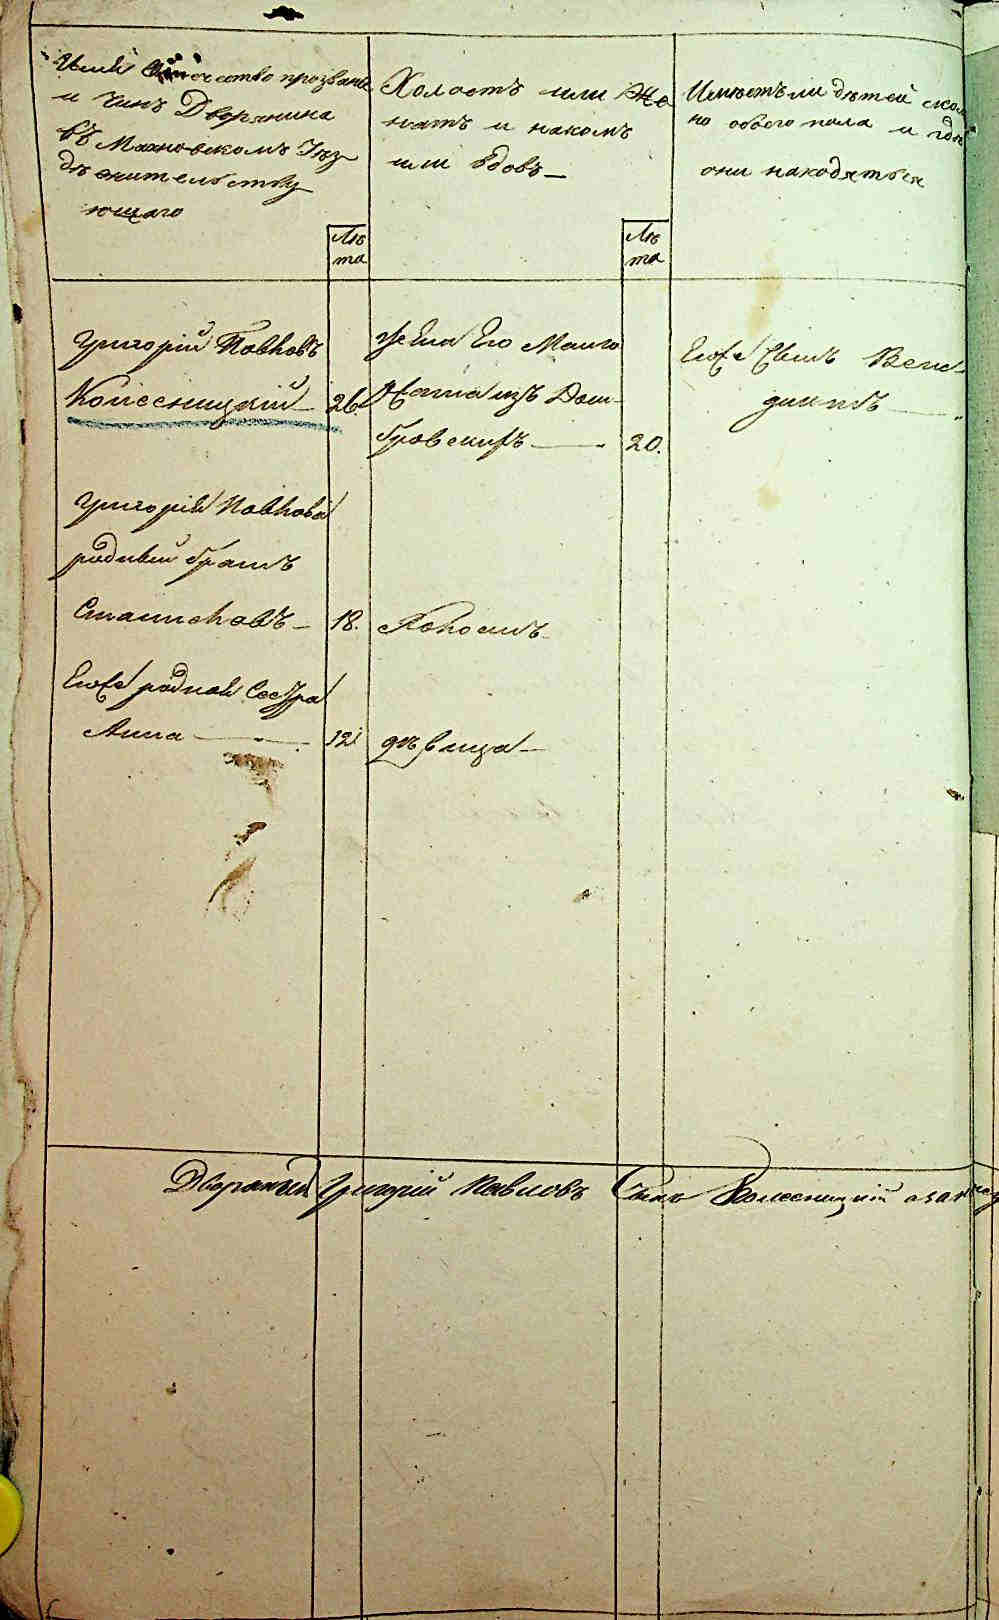 Имя Отечество прозвание
и Чинъ Дворянина
въ Махновскомъ Уѣз
дѣ жительству
ющаго
Лѣ
та
Холостъ или Же
натъ и накомъ
или вдовъ
Лѣ
та
Имѣетъ ли дѣтей сколь
ко обоего пола и гдѣ
они находяться
Григорій Павловъ
Колесницкій 26
жена Его Марго
изъ Дом
бровскихъ 20.
Егоже Сынъ Вене
диктъ
Григорія Павлова
родный братъ
Станиславъ 18. Холостъ
Егоже родная Сестра
Анна 12 дѣвица
Дворянинъ Григорій Павловъ Сынъ Колесницкій